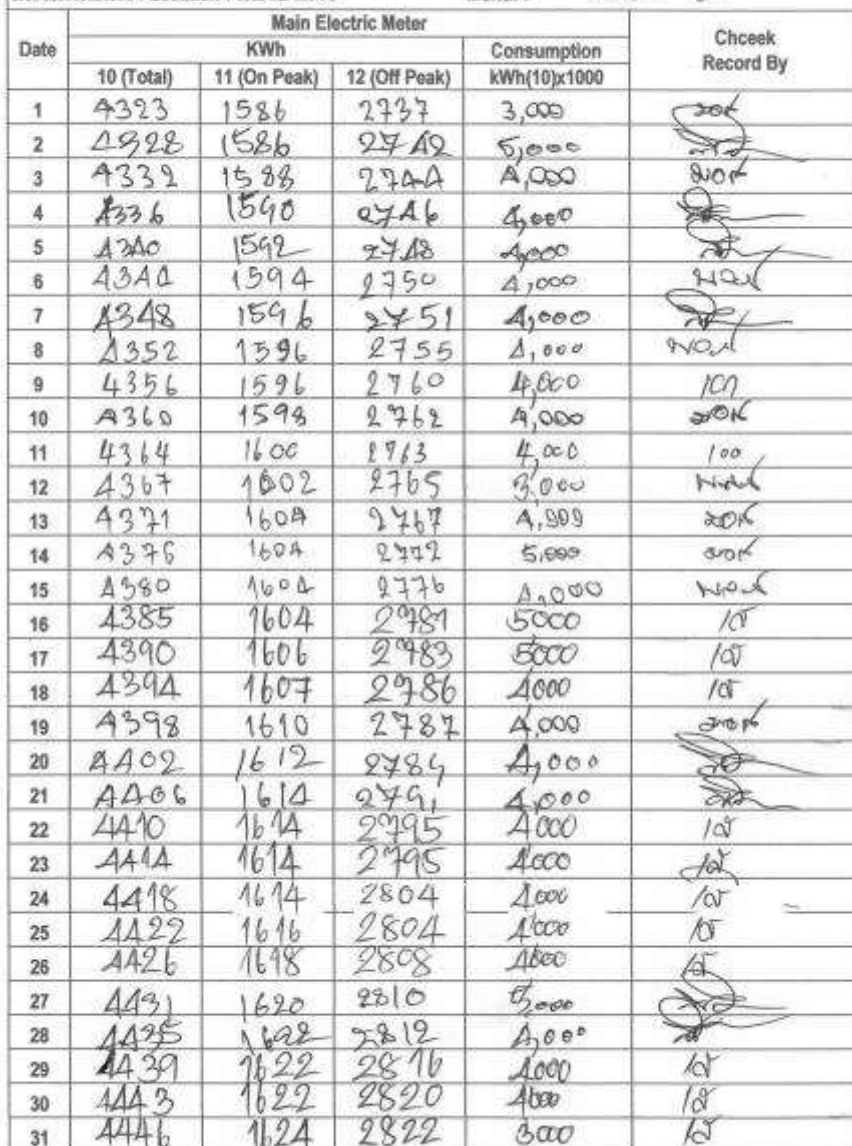 Main Electric Meter
Date KWh Consumption Chceek Record By
10 (Total) 11 (On Peak) 12 (Off Peak) kWh(10)x1000
1 4323 1586 2737 3,000
2 4328 1586 2742 5,000
3 4332 1588 2744 4,000
4 4336 1590 2746 4,000
5 4340 1592 2748 4,000
6 4344 1594 2750 4,000
7 4348 1596 2751 4,000
8 4352 1596 2755 4,000
9 4356 1596 2760 4,000
10 4360 1598 2762 4,000
11 4364 1600 2763 4,000
12 4367 1602 2765 3,000
13 4371 1604 2767 4,000
14 4376 1604 2772 5,000
15 4380 1604 2776 4,000
16 4385 1604 2781 5000
17 4390 1606 2783 5000
18 4394 1607 2786 4000
19 4398 1610 2787 4,000
20 4402 1612 2789 4,000
21 4406 1614 2791 4,000
22 4410 1614 2795 4000
23 4414 1614 2795 4000
24 4418 1614 2804 4000
25 4422 1616 2804 4000
26 4426 1618 2808 4000
27 4431 1620 2810 5,000
28 4435 1622 2812 4,000
29 4439 1622 2816 4000
30 4443 1622 2820 4000
31 4446 1624 2822 3000